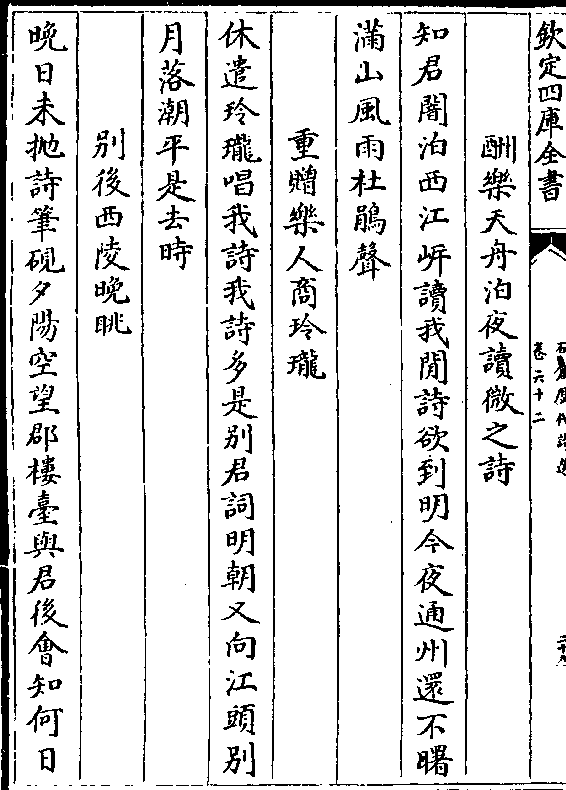 欽定四庫全書
卷六十二
酬樂天舟泊夜讀微之詩
知君闇泊西江岍讀我閒詩欲到明今夜通州還不曙
滿山風雨杜鵑聲
重贈樂人商玲瓏
休遣玲瓏唱我詩我詩多是别君詞明朝又向江頭别
月落潮平是去時
别後西陵晚眺
晚日未抛詩筆硯夕陽空望郡樓臺與君後㑹知何日